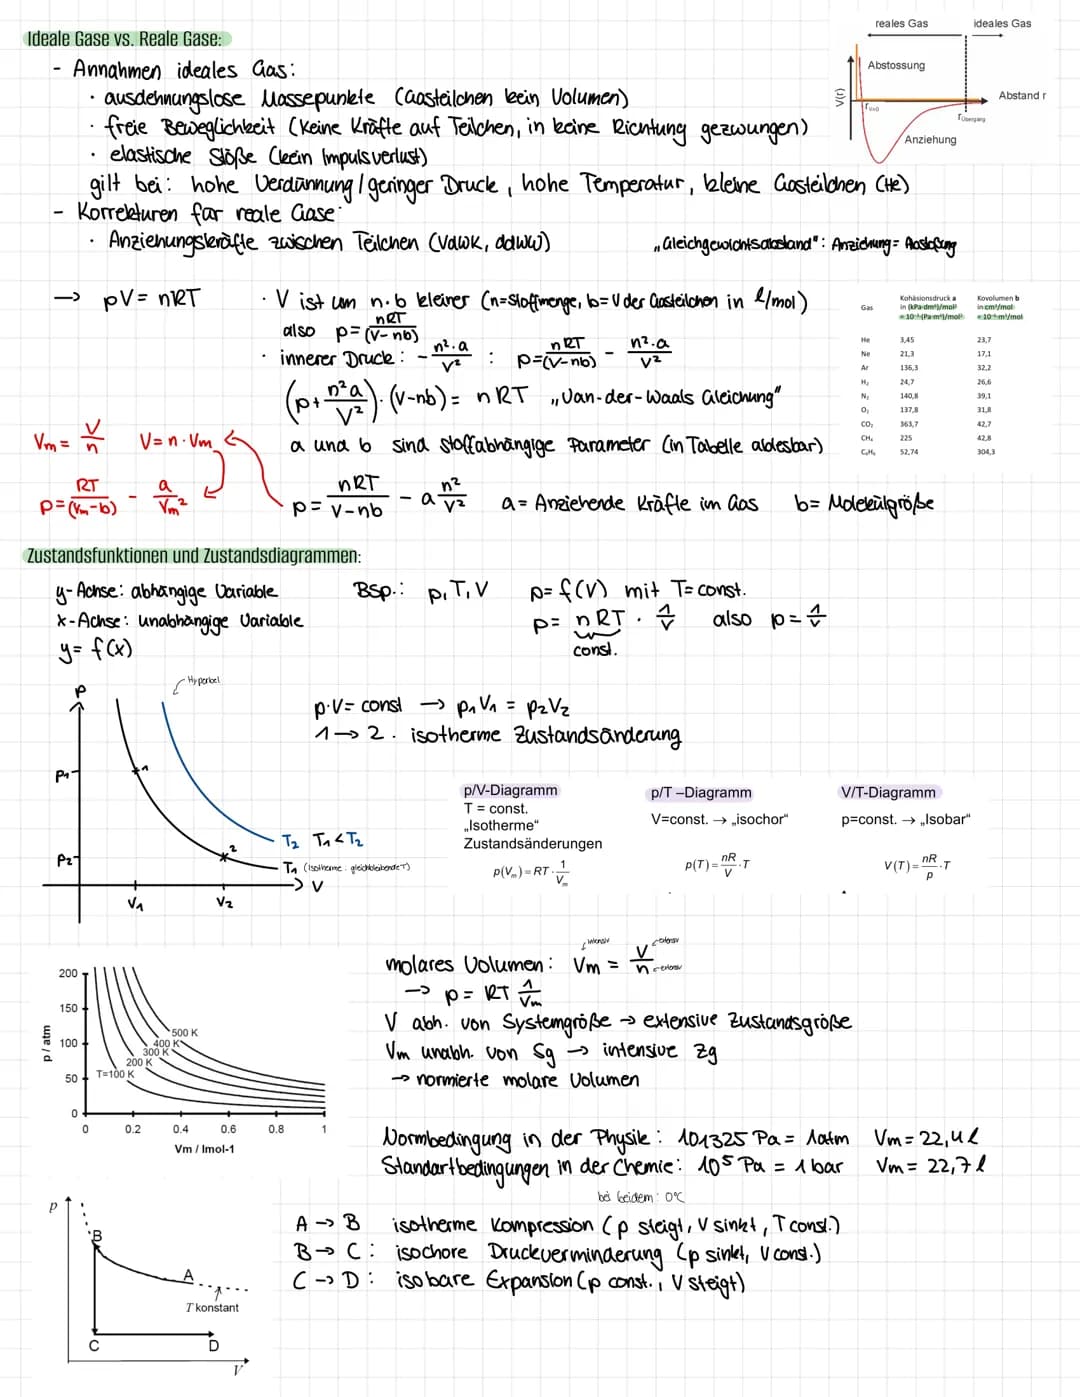 Ideale Gase vs. Reale Gase:
- Annahmen ideales Gas:
· ausdehnungslose Massepunkte (Gasteilchen kein Volumen)
· freie Beweglichkeit (Keine Kräfte auf Teilchen, in keine Richtung gezwungen)
· elastische Stöße (kein Impulsverlust)
gilt bei: hohe Verdünnung/geringer Druck, hohe Temperatur, kleine Gasteilchen (He)
- Korrekturen für reale Gase:
· Anziehungskräfte zwischen Teilchen (VdWK, ddWW)
„Gleichgewichtsabstand": Anziehung = Abstoßung
reales Gas ideales Gas
Abstoßung
V(r)
Abstand r
r_V=0
r_Übergang
Anziehung
→ pV = nRT
· V ist um n·b kleiner (n=Stoffmenge, b=V der Gasteilchen in l/mol)
also p = nRT/(V-nb)
· innerer Druck: - n²·a/V² : p = nRT/(V-nb) - n²·a/V²
(p + n²a/V²)·(V-nb) = nRT „Van-der-Waals Gleichung"
a und b sind stoffabhängige Parameter (in Tabelle ablesbar)
p = nRT/V-nb - a n²/V² a = Anziehende Kräfte im Gas b = Molekülgröße
Vm = V/n V = n·Vm
p = RT/(Vm-b) - a/Vm²
Gas Kohäsionsdruck a in (kPa·dm⁶)/mol² =10⁻³(Pa·m⁶)/mol² Kovolumen b in cm³/mol =10⁻⁶m³/mol
He 3,45 23,7
Ne 21,3 17,1
Ar 136,3 32,2
H₂ 24,7 26,6
N₂ 140,8 39,1
O₂ 137,8 31,8
CO₂ 363,7 42,7
CH₄ 225 42,8
C₆H₆ 52,74 304,3
Zustandsfunktionen und Zustandsdiagrammen:
y-Achse: abhängige Variable
x-Achse: unabhängige Variable
y = f(x)
Bsp.: p, T, V p = f(V) mit T = const.
p = nRT · 1/V also p = 1/V
const.
Hyperbel
p
p₁
p₂
1
2
V₁
V₂
V
T₂ T₁ < T₂
T₁ (Isotherme: gleichbleibende T)
p·V = const → p₁V₁ = p₂V₂
1 → 2. isotherme Zustandsänderung
p/V-Diagramm
T = const.
„Isotherme“
Zustandsänderungen
p(V_m) = RT · 1/V_m
p/T –Diagramm
V=const. → „isochor“
p(T) = nR/V · T
V/T-Diagramm
p=const. → „Isobar“
V(T) = nR/p · T
molares Volumen: Vm = V/n
intensiv
extensiv
extensiv
→ p = RT 1/Vm
V abh. von Systemgröße → extensive Zustandsgröße
Vm unabh. von Sg → intensive Zg
→ normierte molare Volumen
p / atm
200
150
100
50
0
500 K
400 K
300 K
200 K
T=100 K
0 0.2 0.4 0.6 0.8 1
Vm / lmol-1
Normbedingung in der Physik: 101325 Pa = 1atm Vm = 22,4 l
Standartbedingungen in der Chemie: 10⁵ Pa = 1 bar Vm = 22,7 l
bei beidem: 0°C
A → B isotherme Kompression (p steigt, V sinkt, T const.)
B → C: isochore Druckverminderung (p sinkt, V const.)
C → D: isobare Expansion (p const., V steigt)
p
B
A
T konstant
C
D
V